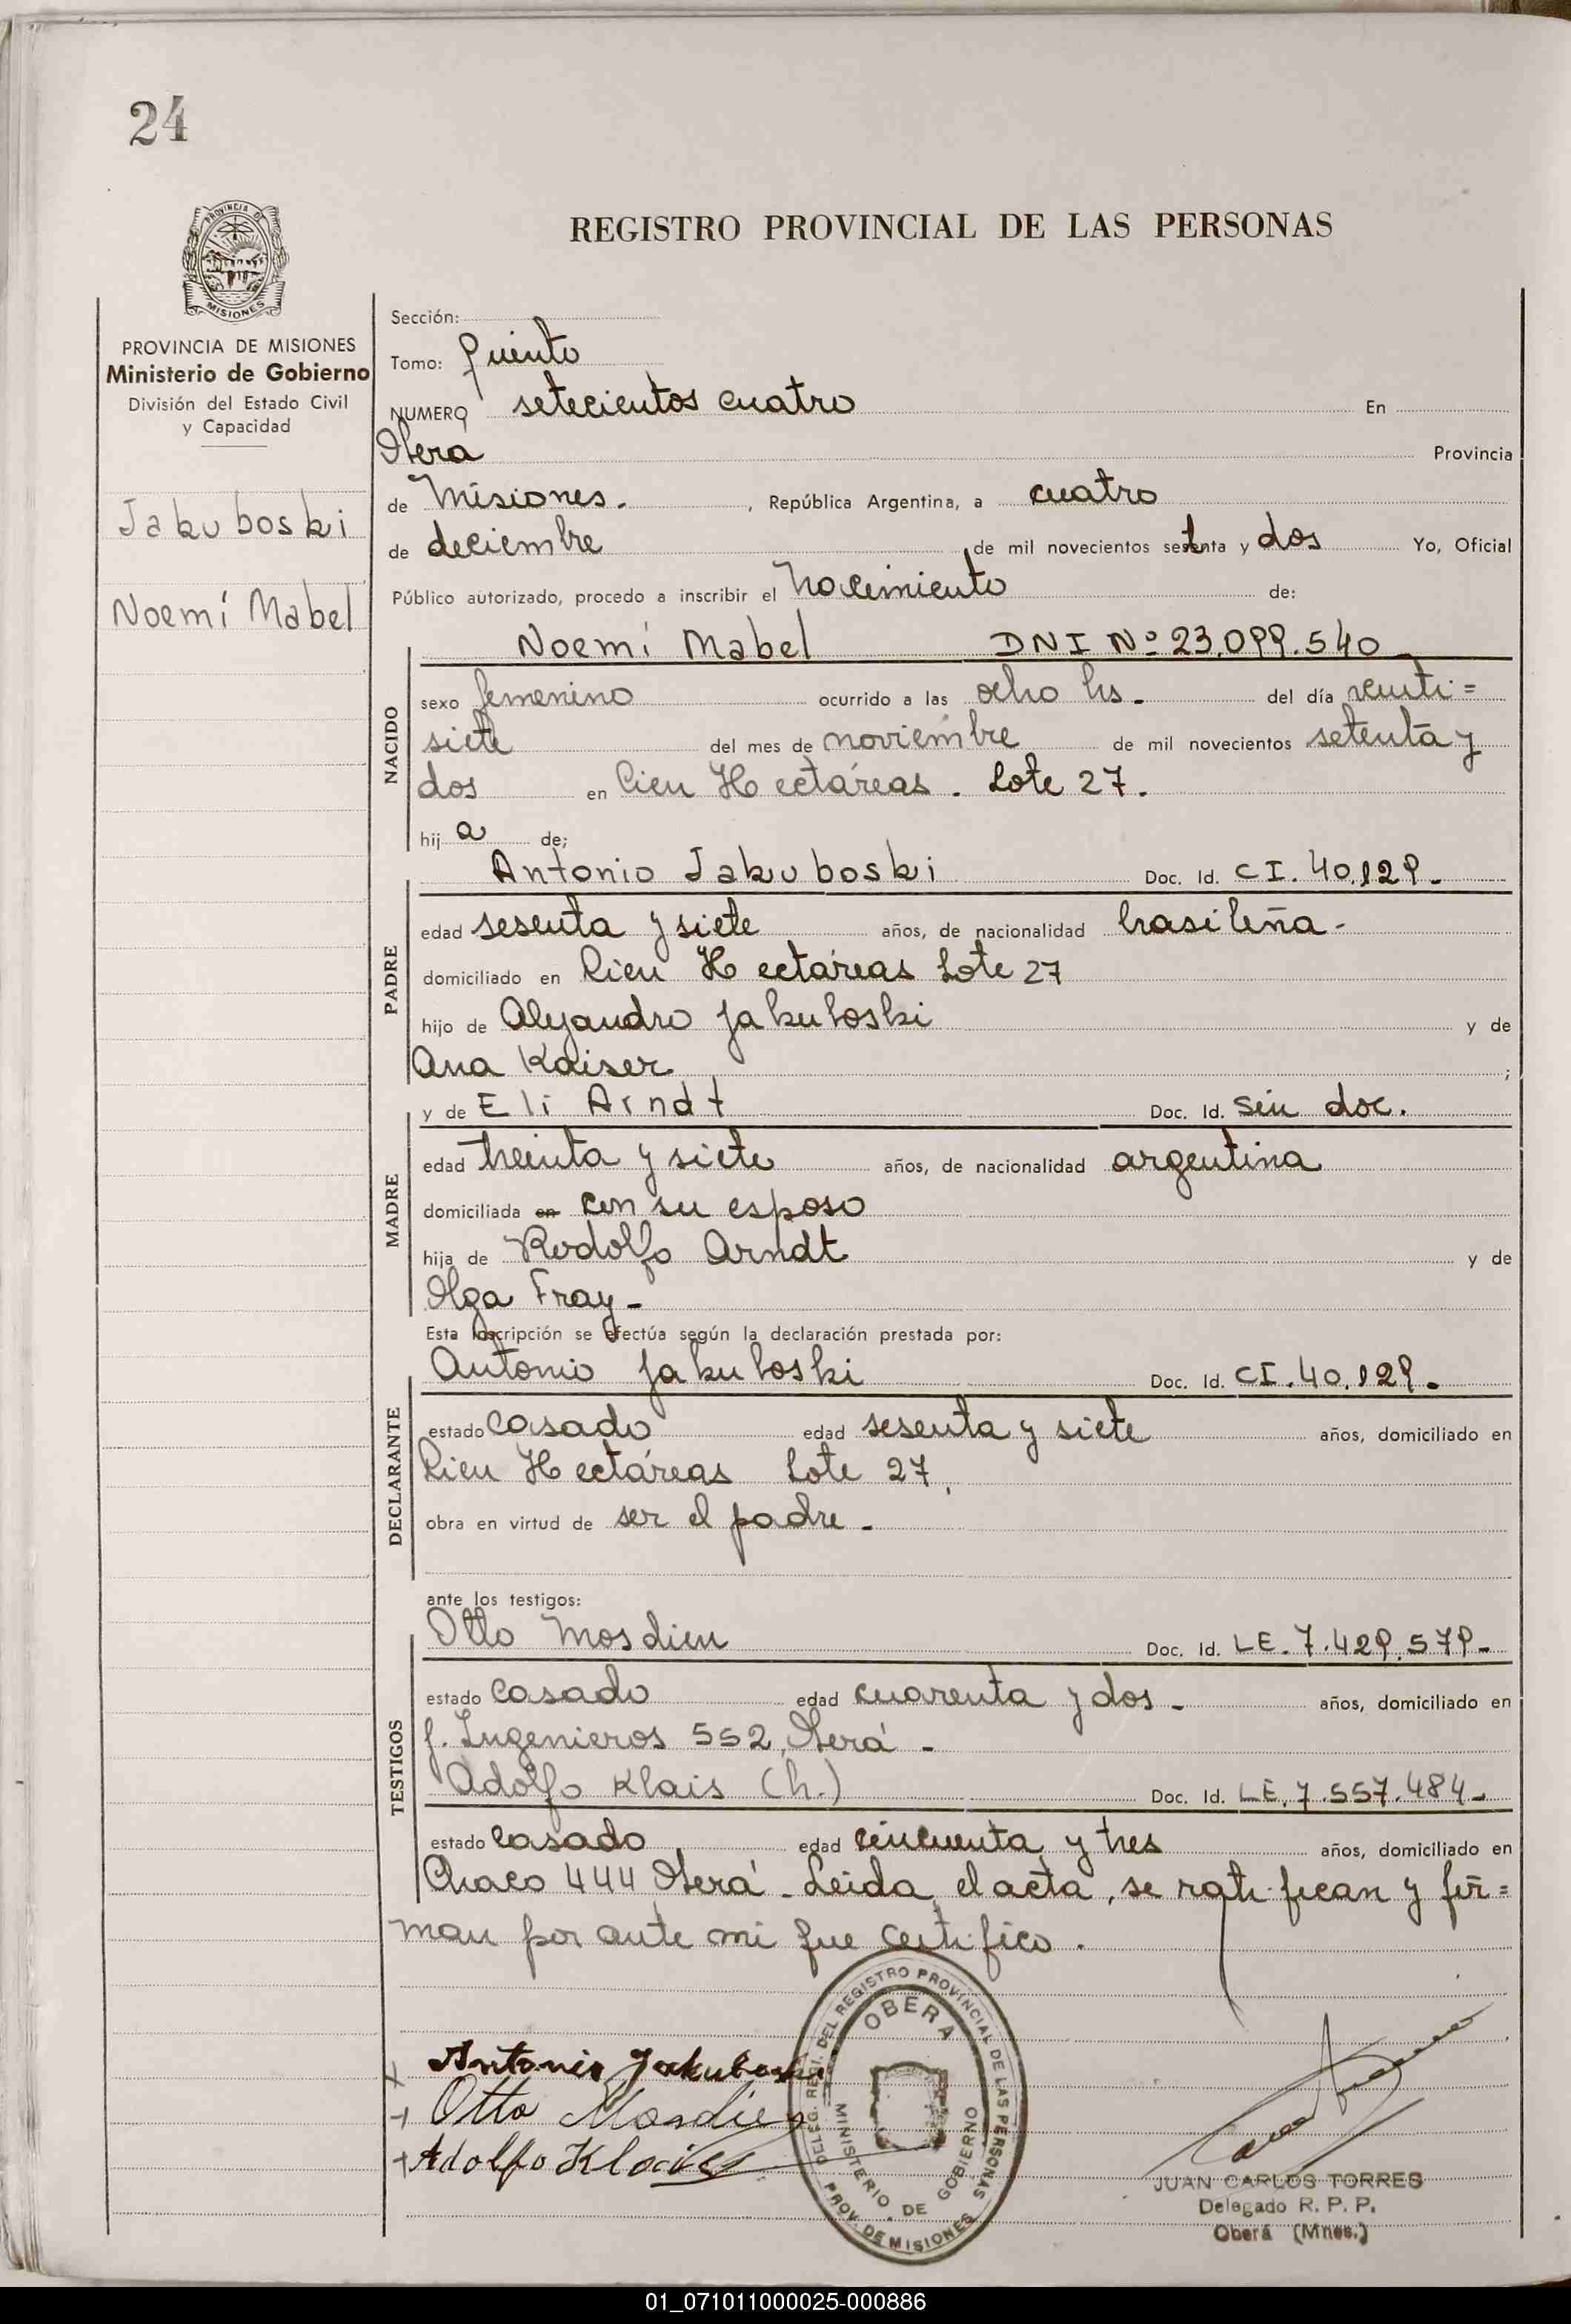 24
PROVINCIA DE
MISIONES
PROVINCIA DE MISIONES
Ministerio de Gobierno
División del Estado Civil
y Capacidad
Jakuboski
Noemí Mabel
REGISTRO PROVINCIAL DE LAS PERSONAS
Sección:
Tomo: Quinto
NUMERO setecientos cuatro En
Oberá Provincia
de Misiones. , República Argentina, a cuatro
de deciembre de mil novecientos setenta y dos Yo, Oficial
Público autorizado, procedo a inscribir el Nacimiento de:
Noemí Mabel DNI Nº 23.099.540
NACIDO
sexo femenino ocurrido a las ocho hs. del día veinti=
siete del mes de noviembre de mil novecientos setenta y
dos en Cien Hectáreas. Lote 27.
hij a de;
Antonio Jakuboski Doc. Id. CI. 40.129.
PADRE
edad sesenta y siete años, de nacionalidad brasileña-
domiciliado en Cien Hectáreas Lote 27
hijo de Alejandro Jakuboski y de
Ana Kaiser ;
y de Eli Arndt Doc. Id. sin doc.
MADRE
edad treinta y siete años, de nacionalidad argentina
domiciliada en con su esposo
hija de Rodolfo Arndt y de
Olga Fray-
Esta inscripción se efectúa según la declaración prestada por:
Antonio Jakuboski Doc. Id. CI. 40.129.
DECLARANTE
estado casado edad sesenta y siete años, domiciliado en
Cien Hectáreas Lote 27.
obra en virtud de ser el padre-
ante los testigos:
Otto Mosdien Doc. Id. LE. 7.429.579-
TESTIGOS
estado casado edad cuarenta y dos- años, domiciliado en
J. Ingenieros 552, Oberá-
Adolfo Klais (h.) Doc. Id. LE. 7.557.484-
estado casado edad cincuenta y tres años, domiciliado en
Chaco 444 Oberá- Leida el acta, se ratifican y fir=
man por ante mi que certifico.
Antonio Jakuboski
Otto Mosdien
Adolfo Klais
DELEG. REGI. DEL REGISTRO PROVINCIAL DE LAS PERSONAS
OBERA
MINISTERIO DE GOBIERNO
PROV. DE MISIONES
JUAN CARLOS TORRES
Delegado R. P. P.
Oberá (Mnes.)
01_071011000025-000886